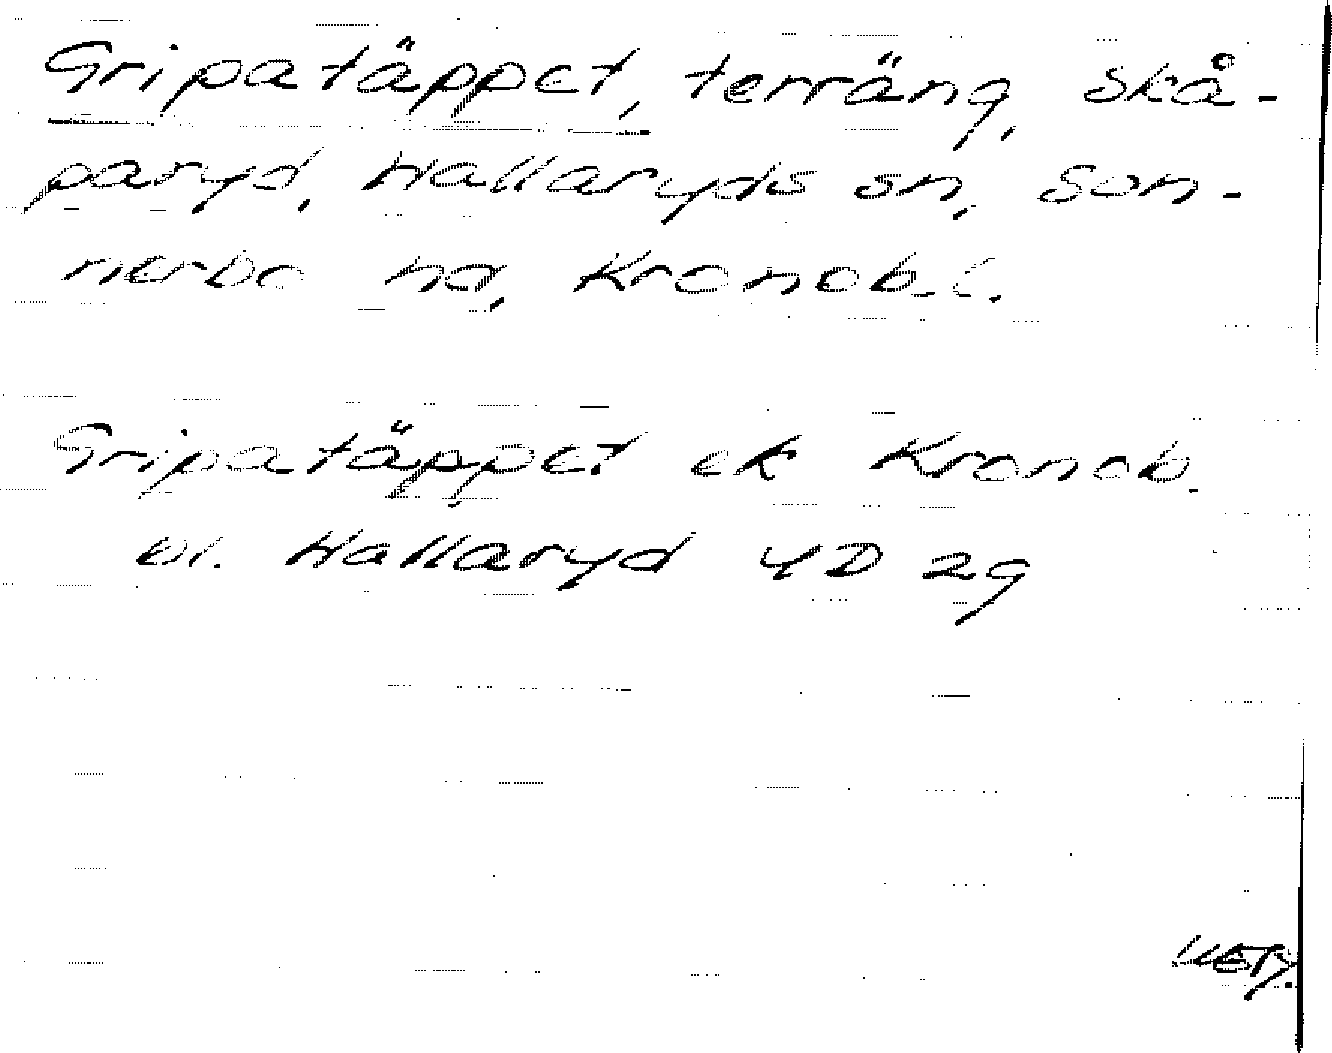 Gripatäppet, terräng, Skå-
paryd, Hallaryds sn, Sun-
nerbo hd, Kronob. l.
Gripatäppet ek Kronob.
bl. Hallaryd 4D 29